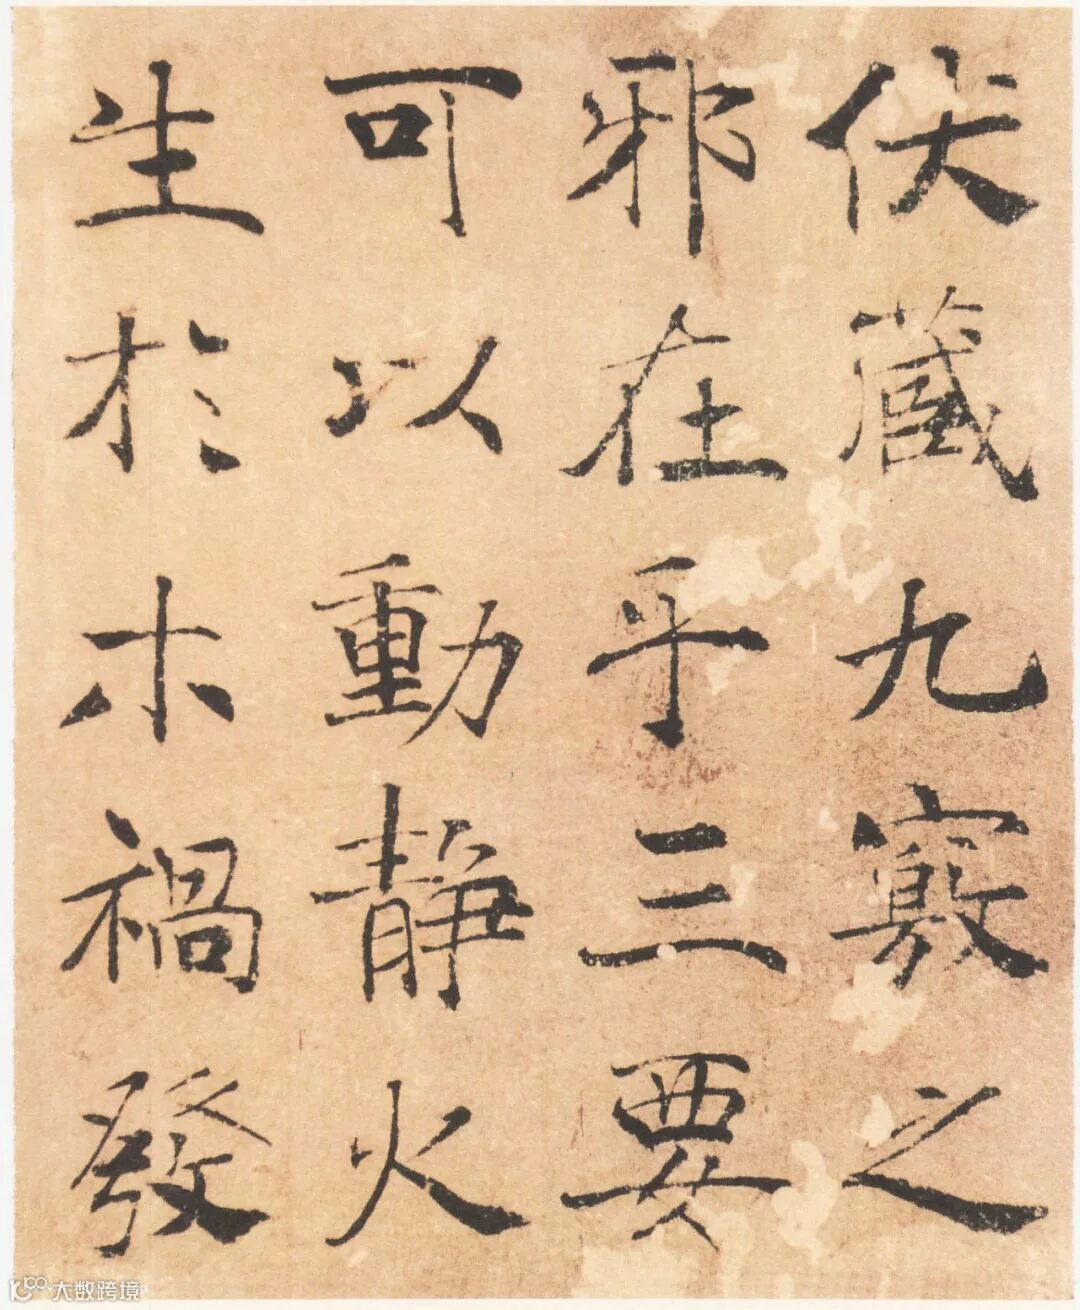 伏藏九竅之
邪在乎三要
可以動静火
生於木禍發
大数跨境